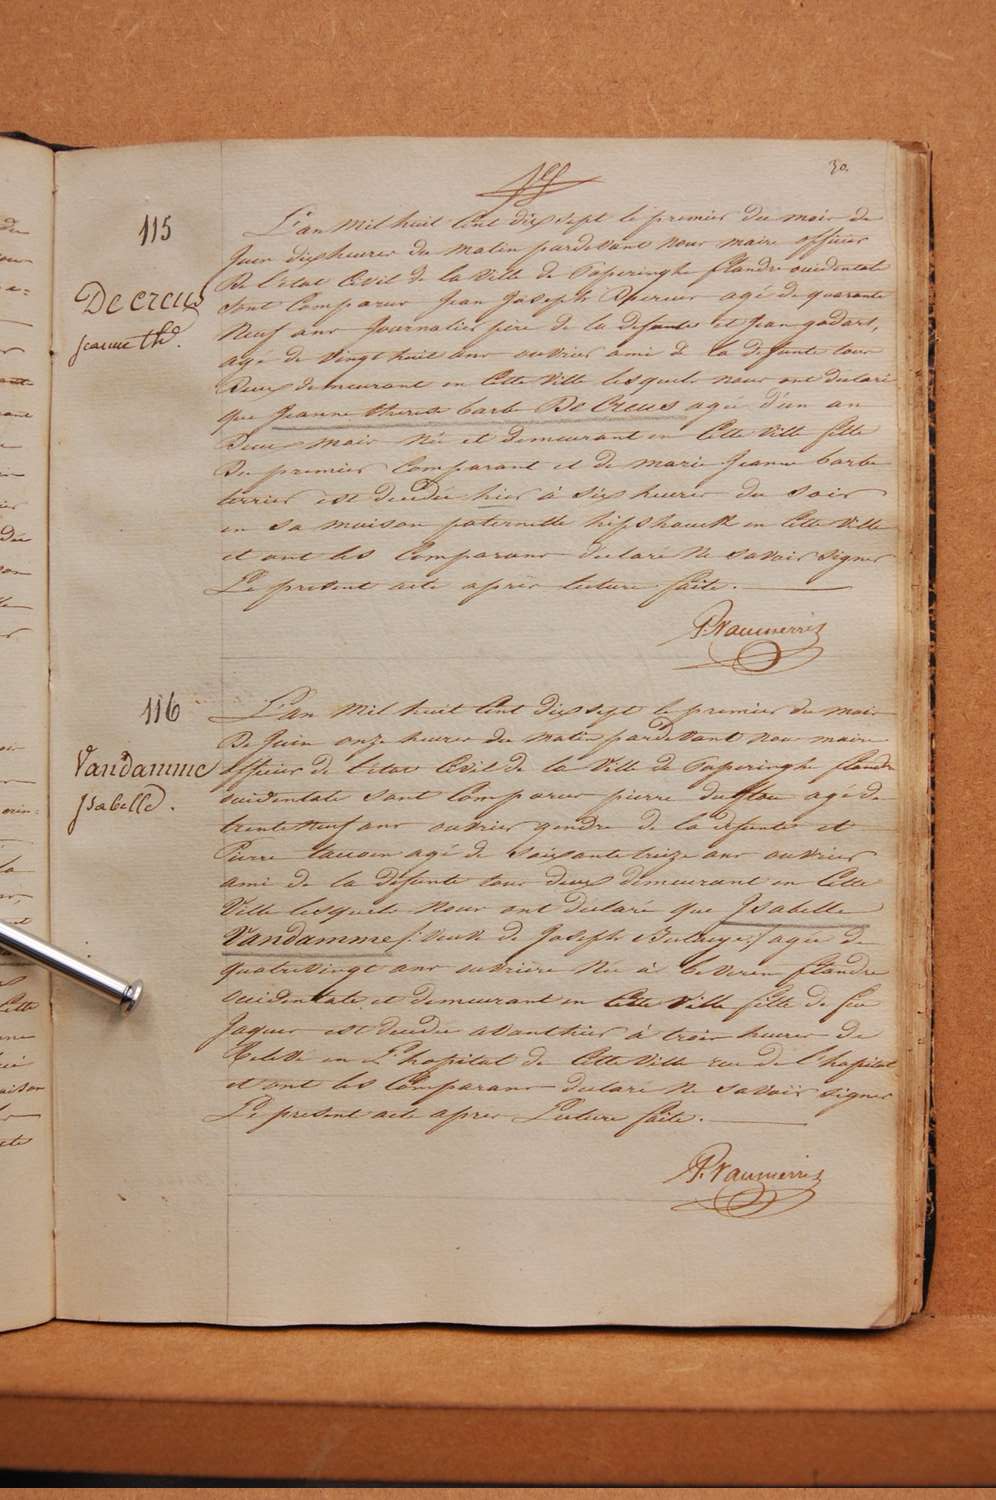 30
115
Decreus
Jeanne th.
L'an Mil huit Cent dix sept le premier du mois de
Juin dix heures du Matin pardevant nous maire officier
De l'etat Civil de la Ville de Poperinghe flandre occidentale
sont Comparus Jean Joseph agé de quarante
Neuf ans Journalier père de la defunte et Jean godart,
agé de vingt huit ans ouvrier ami de la defunte tous
Deux demeurant en Cette Ville lesquels nous ont declaré
que Jeanne therese barbe De Creus agée d'un an
Deux mois Née et demeurant en Cette Ville fille
Du premier Comparant et de marie Jeanne barbe
est decedée hier à six heures du soir
en sa maison paternelle en Cette Ville
et ont les Comparans declaré Ne savoir signer
Le present acte après lecture faite.
P. Vanmerris
116
Vandamme
Isabelle.
L'an Mil huit Cent dix sept le premier du mois
De Juin onze heures du matin pardevant nous maire
officier de l'etat Civil de la Ville de Poperinghe flandre
occidentale sont Comparus pierre agé de
trente Neuf ans ouvrier gendre de la defunte et
Pierre agé de soixante treize ans ouvrier
ami de la défunte tous deux demeurant en Cette
Ville lesquels Nous ont déclaré que Isabelle
Vandamme /: veuve de Joseph :/ agée de
quatre vingt ans ouvrière Née à beveren flandre
occidentale et demeurant en Cette Ville fille de feu
Jaques est decedée avant hier à trois heures de
en L'hopital de Cette Ville rue de l'hopital
et ont les Comparans declaré Ne savoir signer
Le present acte apres Lecture faite.
P. Vanmerris